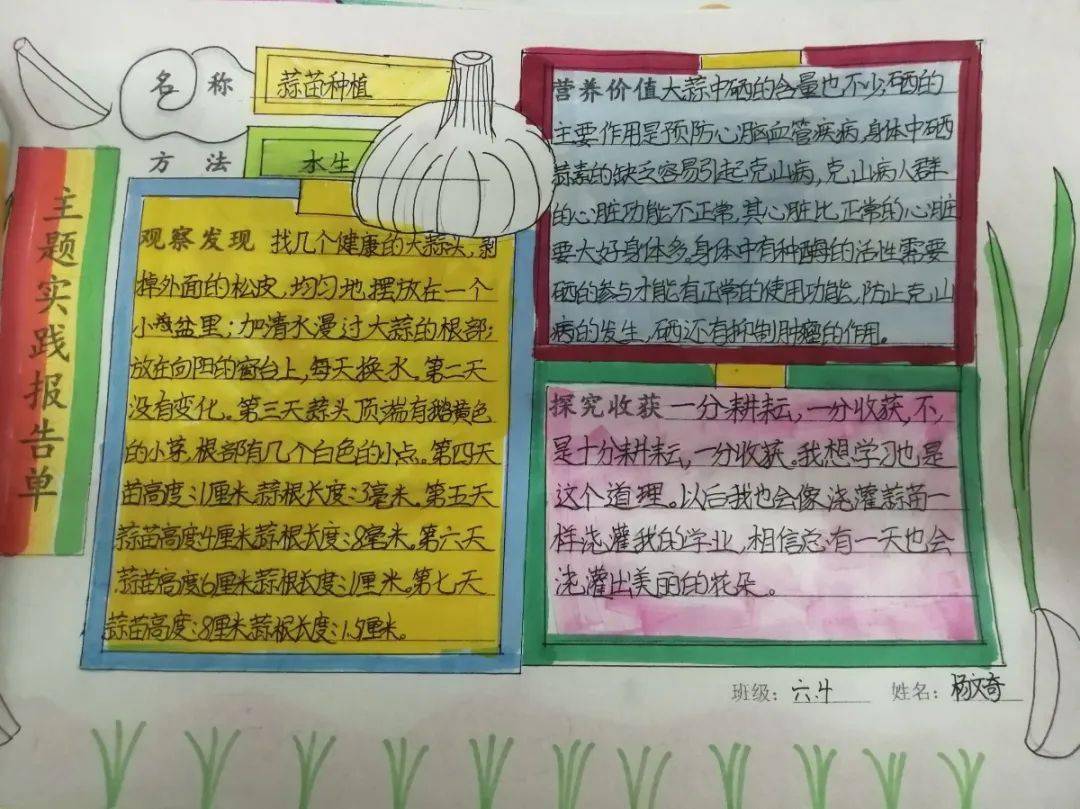 主题实践报告单
名称
蒜苗种植
方法
水生
观察发现 找几个健康的大蒜头,剥
掉外面的松皮,均匀地摆放在一个
小盆里;加清水漫过大蒜的根部;
放在向阳的窗台上,每天换水。第二天
没有变化。第三天蒜头顶端有鹅黄色
的小芽,根部有几个白色的小点。第四天
苗高度:1厘米,蒜根长度:3毫米。第五天
蒜苗高度4厘米蒜根长度:8毫米。第六天
蒜苗高度6厘米蒜根长度:1厘米。第七天
蒜苗高度:8厘米蒜根长度:1.5厘米。
营养价值大蒜中硒的含量也不少,硒的
主要作用是预防心脑血管疾病,身体中硒
元素的缺乏容易引起克山病,克山病人群
的心脏功能不正常,其心脏比正常的心脏
要大好身体多,身体中有种酶的活性需要
硒的参与才能有正常的使用功能,防止克山
病的发生,硒还有抑制肿瘤的作用。
探究收获 一分耕耘,一分收获,不,
是十分耕耘,一分收获。我想学习也是
这个道理。以后我也会像浇灌蒜苗一
样浇灌我的学业,相信总有一天也会
浇灌出美丽的花朵。
班级:六.4 姓名:杨文奇